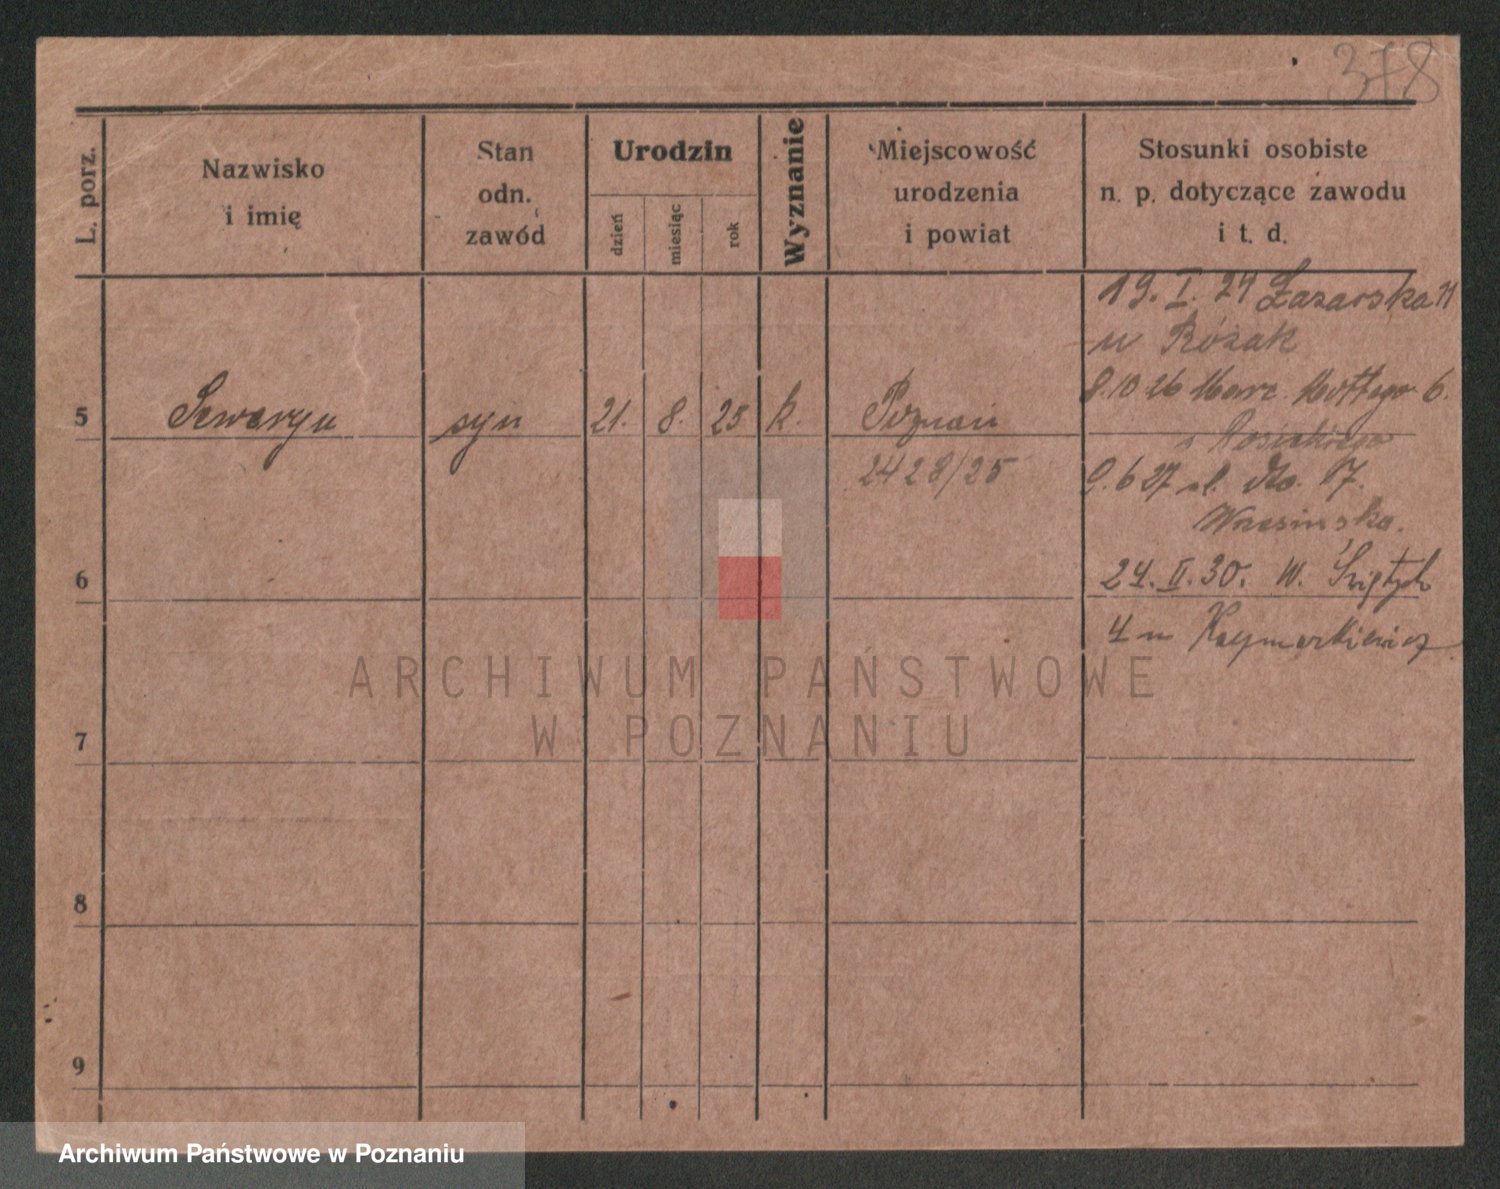 378
L. porz.
Nazwisko
i imię
Stan
odn.
zawód
Urodzin
dzień
miesiąc
rok
Wyznanie
Miejscowość
urodzenia
i powiat
Stosunki osobiste
n. p. dotyczące zawodu
i t. d.
19. I. 24 Łazarska 11
u Różak
8.10 26 Marc. Mottego 6.
5 Seweryn syn 21. 8. 25 k. Poznań
2428/25
9.6 27
17.
Wrzesińska.
6
24. II. 30. W.
4 u Kaymarkiewicz
7
8
9
ARCHIWUM PAŃSTWOWE
W POZNANIU
Archiwum Państwowe w Poznaniu